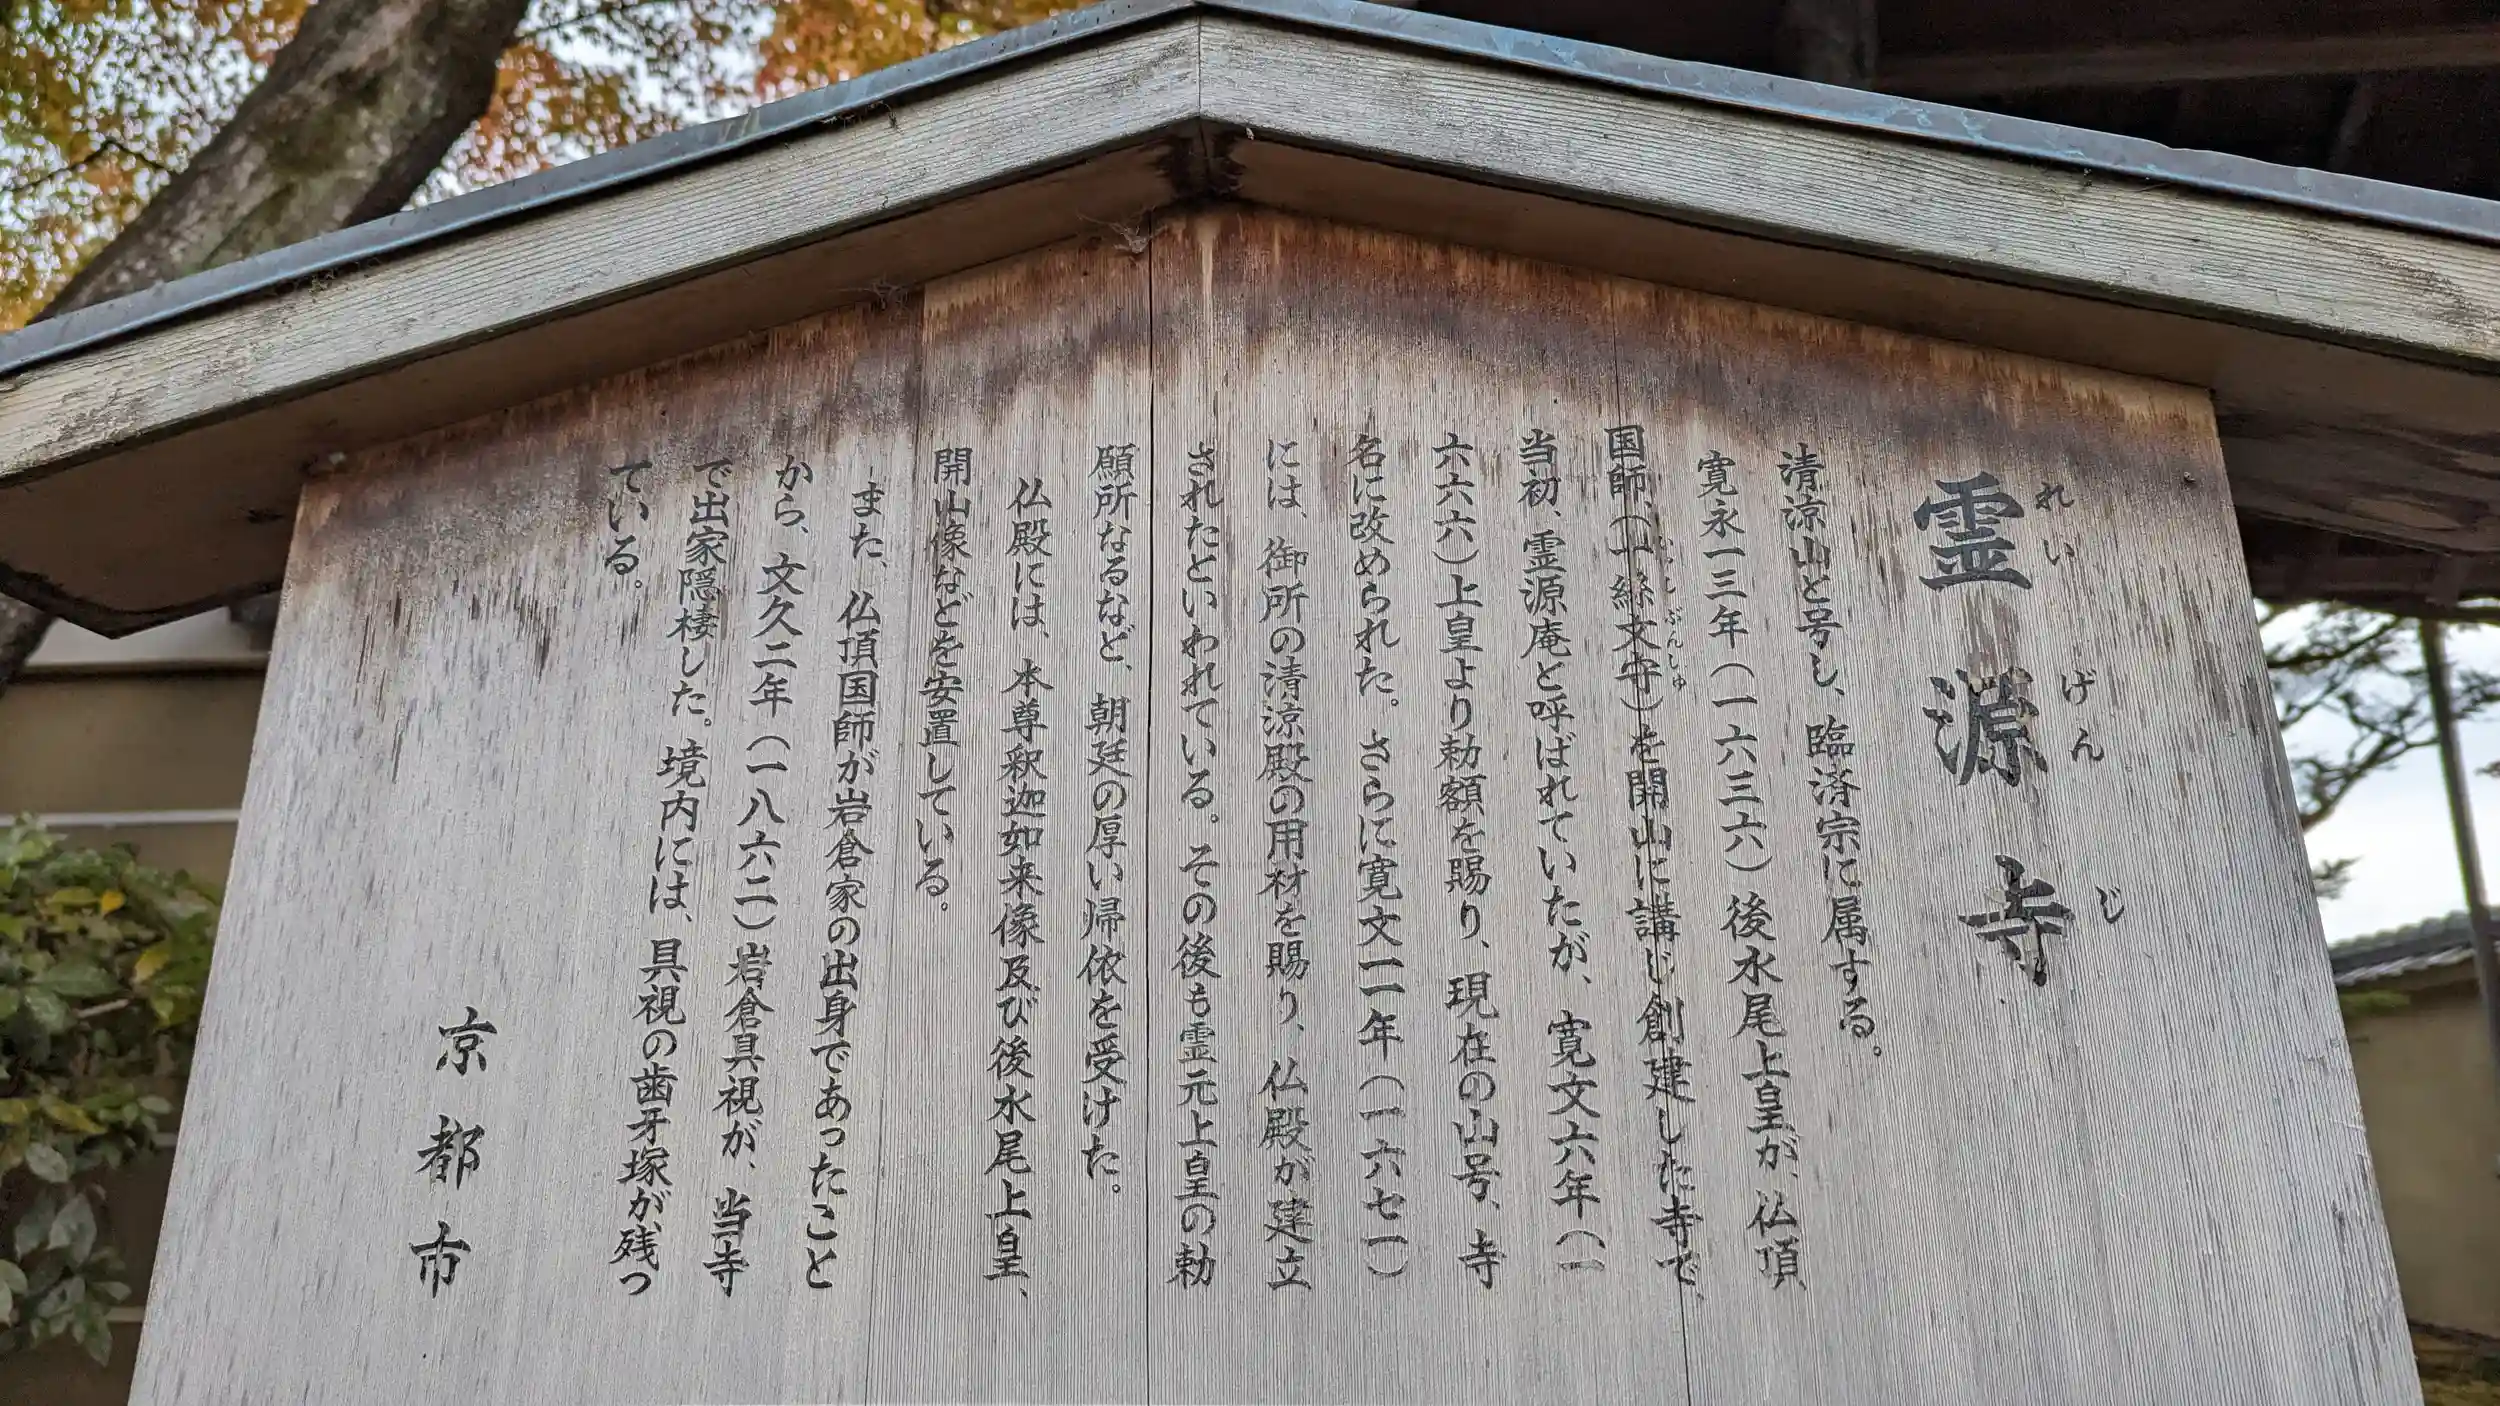 霊源寺
れいげんじ
清涼山と号し、臨済宗に属する。
寛永一三年（一六三六）後水尾上皇が、仏頂
国師（一絲文守）を開山に講じ創建した寺で、
いっしぶんしゅ
当初、霊源庵と呼ばれていたが、寛文六年（一
六六六）上皇より勅額を賜り、現在の山号、寺
名に改められた。さらに寛文一一年（一六七一）
には、御所の清涼殿の用材を賜り、仏殿が建立
されたといわれている。その後も霊元上皇の勅
願所なるなど、朝廷の厚い帰依を受けた。
仏殿には、本尊釈迦如来像及び後水尾上皇、
開山像などを安置している。
また、仏頂国師が岩倉家の出身であったこと
から、文久二年（一八六二）岩倉具視が、当寺
で出家隠棲した。境内には、具視の歯牙塚が残っ
ている。
京都市